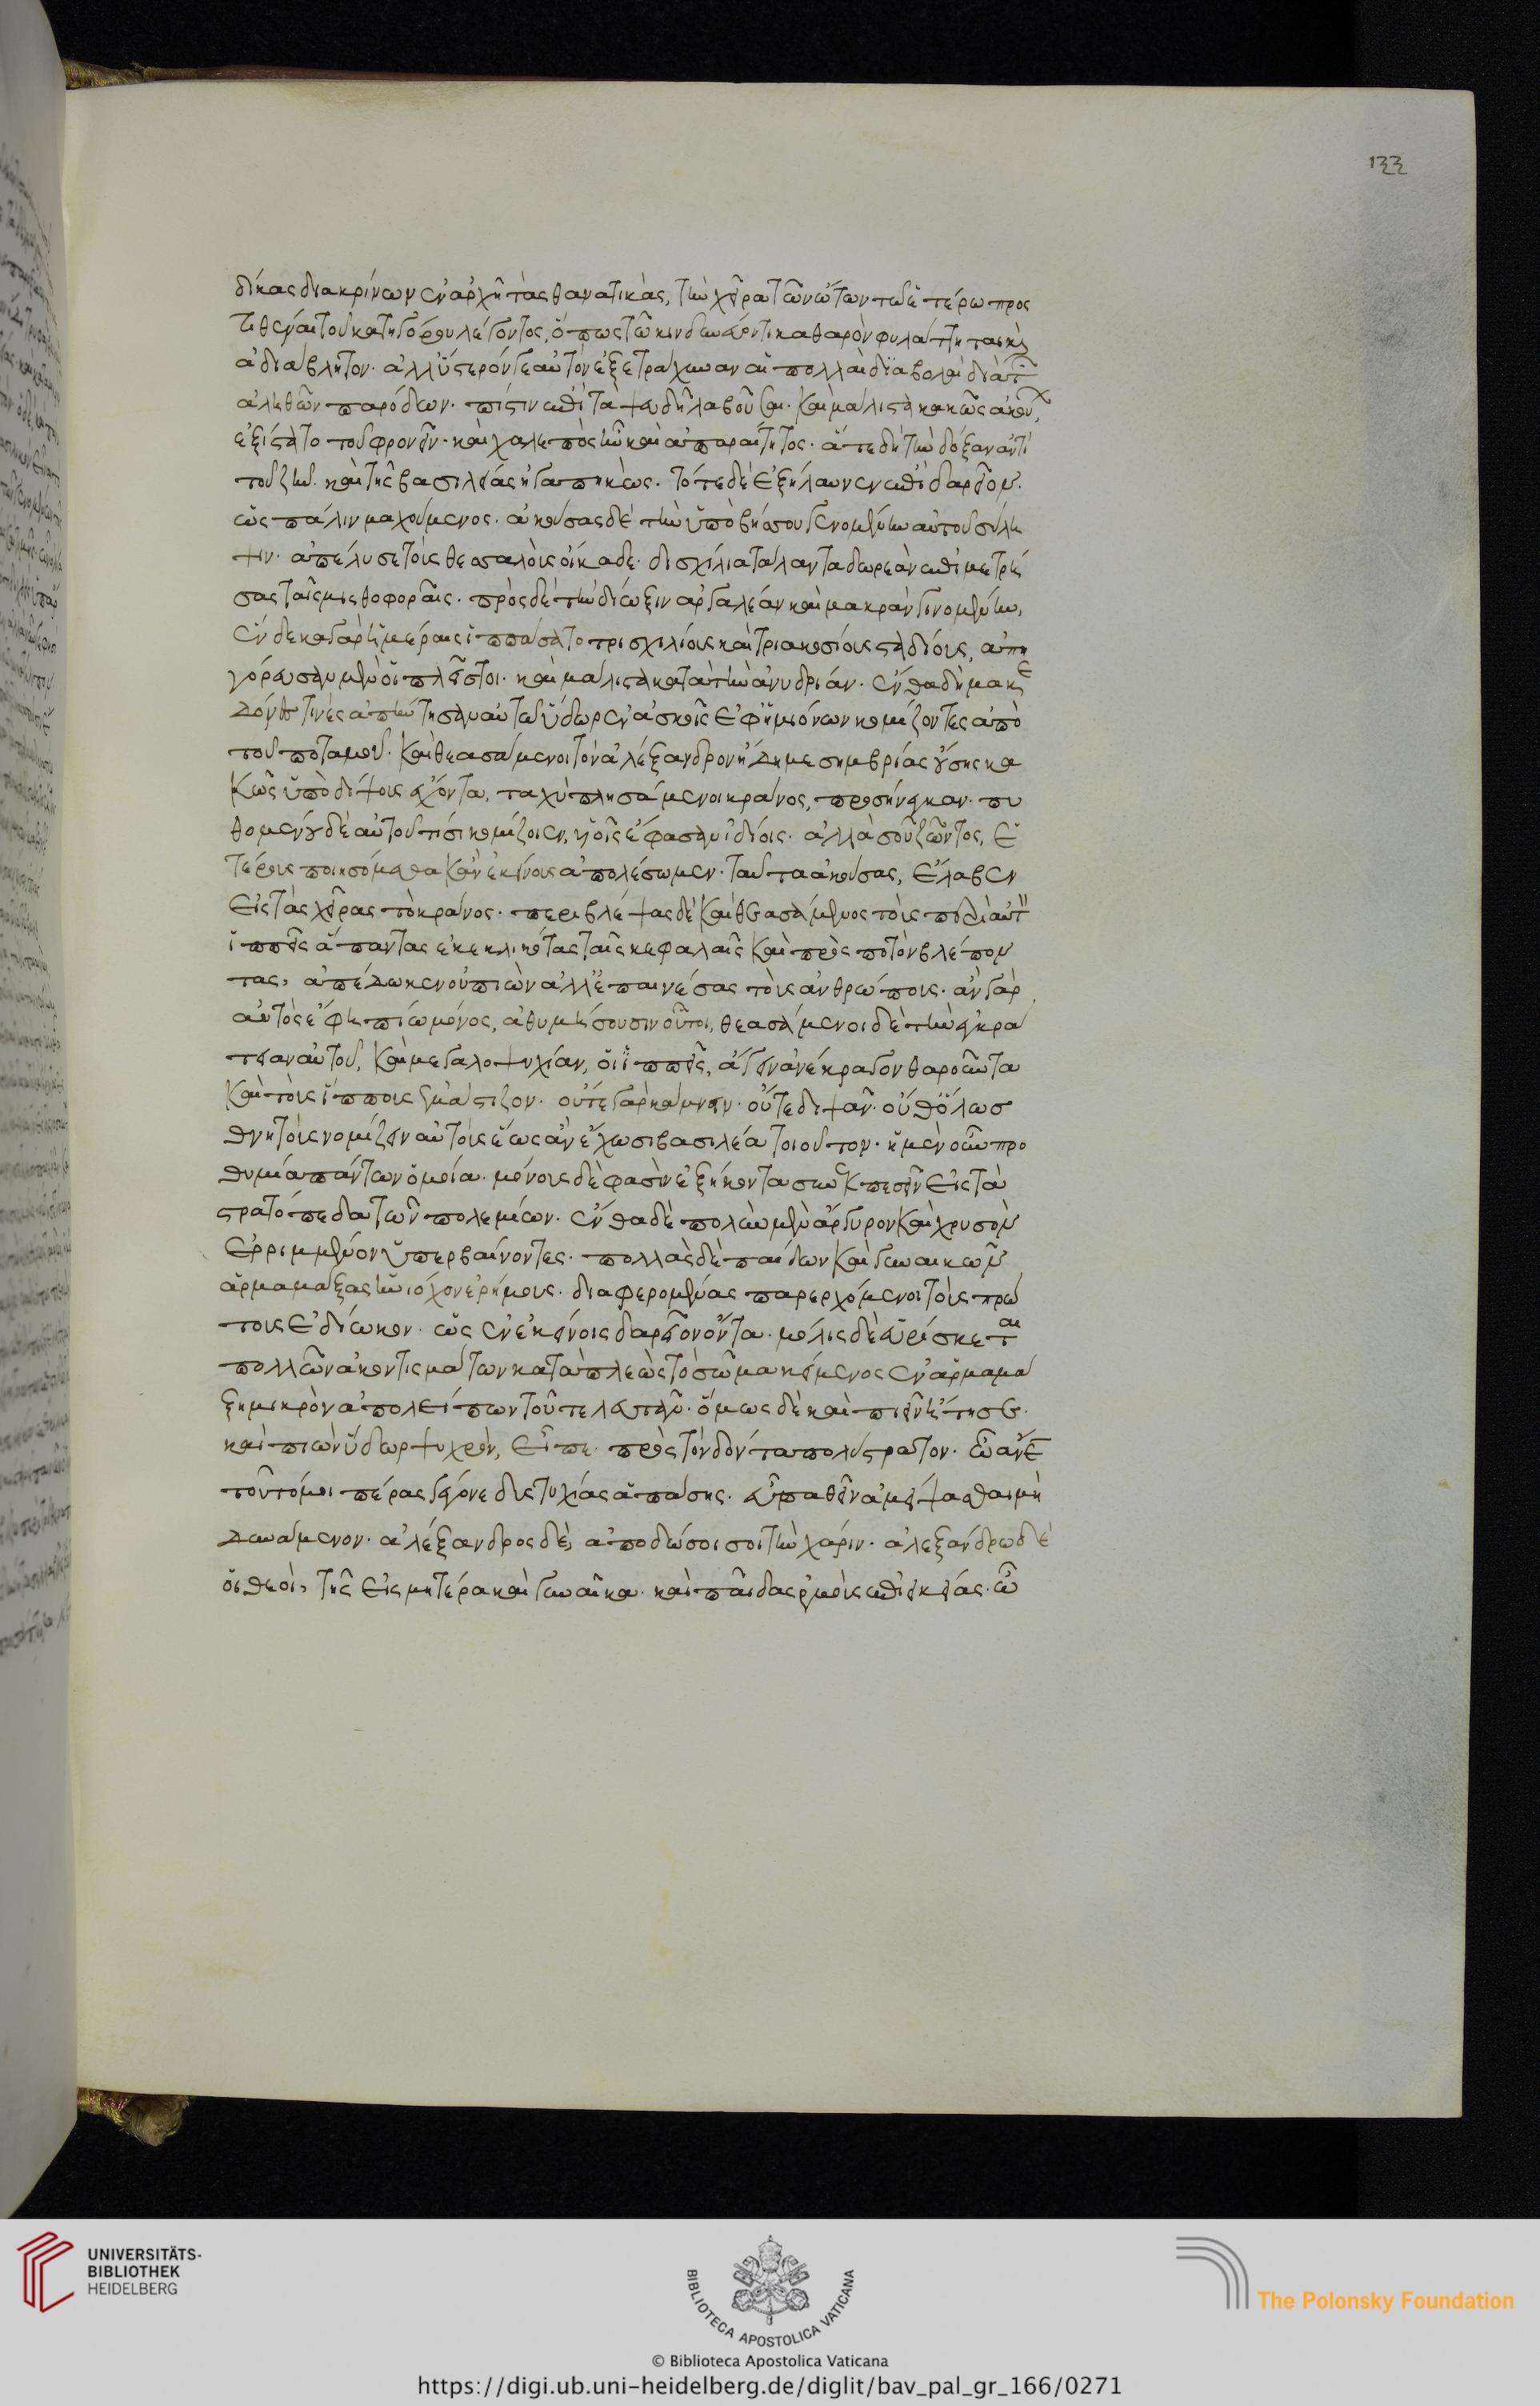 δίκας διακρίνων ἐν ἀρχῇ τὰς θανατικὰς, τὴν χεῖρα τῶν ὤτων τῶ ἑτέρω προς
τιθέναι τοῦ κατηγόρου λέγοντος, ὅπως τῶ κινδυνεύοντι καθαρὸν φυλάττηται καὶ
ἀδιάβλητον. ἀλλ' ὕστερόν γε αὐτὸν ἐξετράχυναν αἱ πολλαὶ διαβολαὶ διὰ τῶν
ἀληθῶν παρόδων. πίστιν ἐπὶ τὰ ψευδῆ λαβοῦσαι. καὶ μάλιστα κακῶς ἀκούων,
ἐξίστατο τοῦ φρονεῖν. καὶ χαλεπὸς ἦν καὶ ἀπαραίτητος. ἅτε δὴ τὴν δόξαν ἀντὶ
τοῦ ζῆν. καὶ τῆς βασιλείας ἠγαπηκώς. τότε δὲ ἐξήλαυνεν ἐπὶ δαρεῖον.
ὡς πάλιν μαχούμενος. ἀκούσας δὲ τὴν ὑπὸ βήσου γενομένην αὐτοῦ σύλη
ψιν. ἀπέλυσε τοὺς θεσαλοὺς οἴκαδε. δισχίλια τάλαντα δωρεὰν ἐπιμετρή
σας ταῖς μισθοφοραῖς. πρὸς δὲ τὴν δίωξιν ἀργαλέαν καὶ μακρὰν γινομένην,
ἕνδεκα γὰρ ἡμέραις ἱππάσατο τρισχιλίους καὶ τριακοσίους σταδίους, ἀπη
γόρευσαν μὲν οἱ πλεῖστοι. καὶ μάλιστα κατὰ τὴν ἀνυδρίαν. ἔνθα δὴ μακε
δόνες τινὲς ἀπήντησαν αὐτῶ ὕδωρ ἐν ἀσκοῖς ἐφ' ἡμιόνων κομίζοντες ἀπὸ
τοῦ ποταμοῦ. καὶ θεασάμενοι τὸν ἀλέξανδρον ἤδη μεσημβρίας οὔσης κα
κῶς ὑπὸ δίψους ἔχοντα, ταχὺ πλησάμενοι κράνος, προσήνεγκαν. πυ
θομένου δὲ αὐτοῦ τίσι κομίζοιεν, υἱοῖς ἔφασαν ἰδίοις. ἀλλὰ σοῦ ζῶντος, ἑ
τέρους ποιησόμεθα κἂν ἐκείνους ἀπολέσωμεν. ταῦτα ἀκούσας, ἔλαβεν
εἰς τὰς χεῖρας τὸ κράνος. περιβλέψας δὲ καὶ θεασάμενος τοὺς περὶ αὐτὸν
ἱππεῖς ἅπαντας ἐκκεκλικότας ταῖς κεφαλαῖς καὶ πρὸς ποτὸν βλέπον
τας, ἀπέδωκεν οὐ πιὼν ἀλλ' ἐπαινέσας τοὺς ἀνθρώπους. ἂν γὰρ
αὐτὸς ἔφη πίω μόνος, ἀθυμήσουσιν οὗτοι, θεασάμενοι δὲ τὴν ἐγκρά
τειαν αὐτοῦ, καὶ μεγαλοψυχίαν, οἱ ἱππεῖς, ἄγειν ἀνέκραγον θαροῦντα
καὶ τοὺς ἵππους ἐμάστιζον. οὔτε γὰρ κάμνειν. οὔτε διψᾶν. οὔθ' ὅλως
θνητοὺς νομίζειν αὐτοὺς ἕως ἂν ἔχωσι βασιλέα τοιοῦτον. ἡ μὲν οὖν προ
θυμία πάντων ὁμοία. μόνους δὲ φασὶν ἑξήκοντα συνεκπεσεῖν εἰς τὰ
στρατόπεδα τῶν πολεμίων. ἔνθα δὴ πολὺν μὲν ἄργυρον καὶ χρυσὸν
ἐρριμμένον ὑπερβαίνοντες. πολλὰς δὲ παίδων καὶ γυναικῶν
ἁρμαμάξας ἡνιόχων ἐρήμους. διαφερομένας παρερχόμενοι τοὺς πρώ
τους ἐδίωκον. ὡς ἐν ἐκείνοις δαρεῖον ὄντα. μόλις δὲ εὑρίσκεται
πολλῶν ἀκοντισμάτων κατάπλεως τὸ σῶμα κείμενος ἐν ἁρμαμά
ξη μικρὸν ἀπολείπων τοῦ τελευτᾶν. ὅμως δὲ καὶ πιεῖν ἤτησε.
καὶ πιὼν ὕδωρ ψυχρὸν, εἶπε. πρὸς τὸν δόντα πολύστρατον. ὦ ἄνθρωπε
τοῦτό μοι πέρας γέγονε δυστυχίας ἁπάσης. εὖ παθεῖν ἀμείψασθαι μὴ
δυνάμενον. ἀλέξανδρος δὲ, ἀποδώσοι σοι τὴν χάριν. ἀλεξάνδρω δὲ
οἱ θεοὶ, τῆς εἰς μητέρα καὶ γυναῖκα. καὶ παῖδας ἐμοὺς ἐπιεικείας. ὧ
133
UNIVERSITÄTS-
BIBLIOTHEK
HEIDELBERG
BIBLIOTECA APOSTOLICA VATICANA
The Polonsky Foundation
© Biblioteca Apostolica Vaticana
https://digi.ub.uni-heidelberg.de/diglit/bav_pal_gr_166/0271